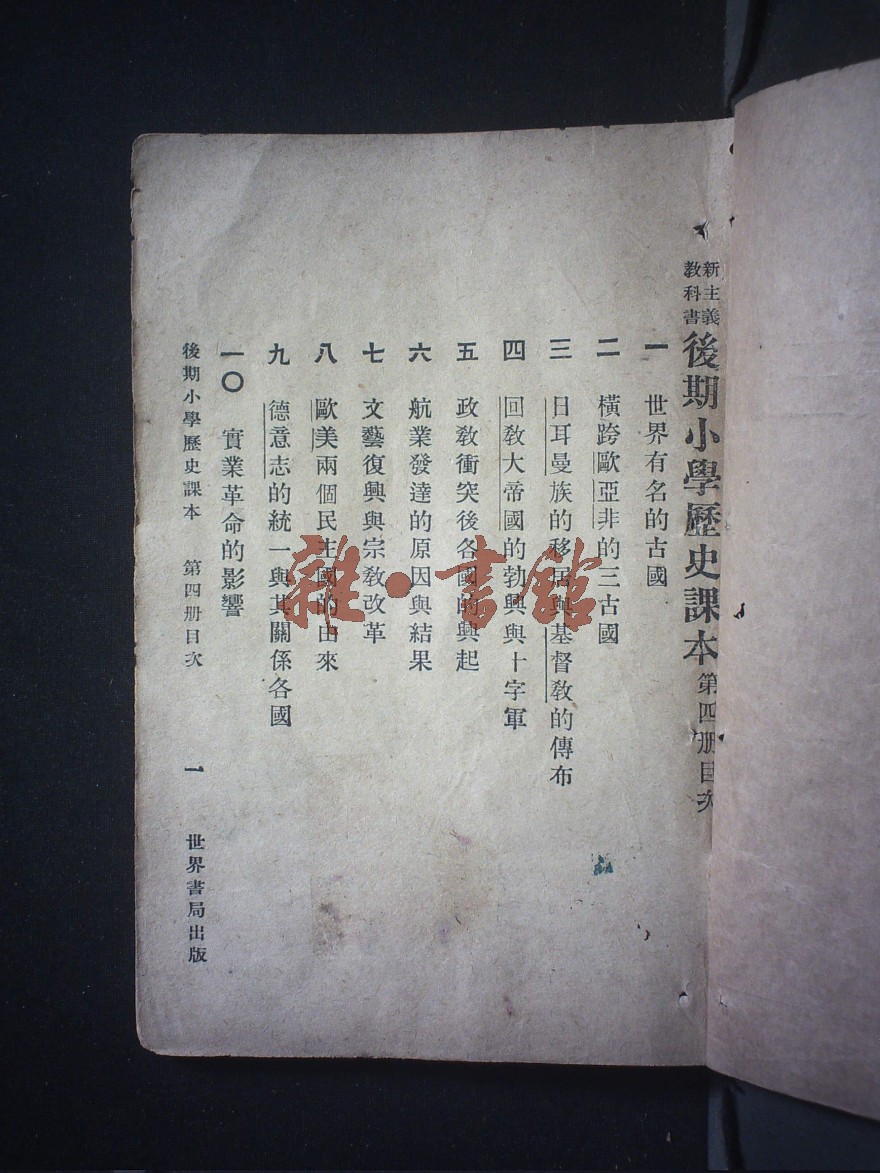 新主義教科書
後期小學歷史課本 第四册目次
一 世界有名的古國
二 橫跨歐亞非的三古國
三 日耳曼族的移居與基督敎的傳布
四 回敎大帝國的勃興與十字軍
五 政敎衝突後各國的興起
六 航業發達的原因與結果
七 文藝復興與宗敎改革
八 歐美兩個民主國的由來
九 德意志的統一與其關係各國
一〇 實業革命的影響
後期小學歷史課本 第四册目次 一 世界書局出版
雜·書館